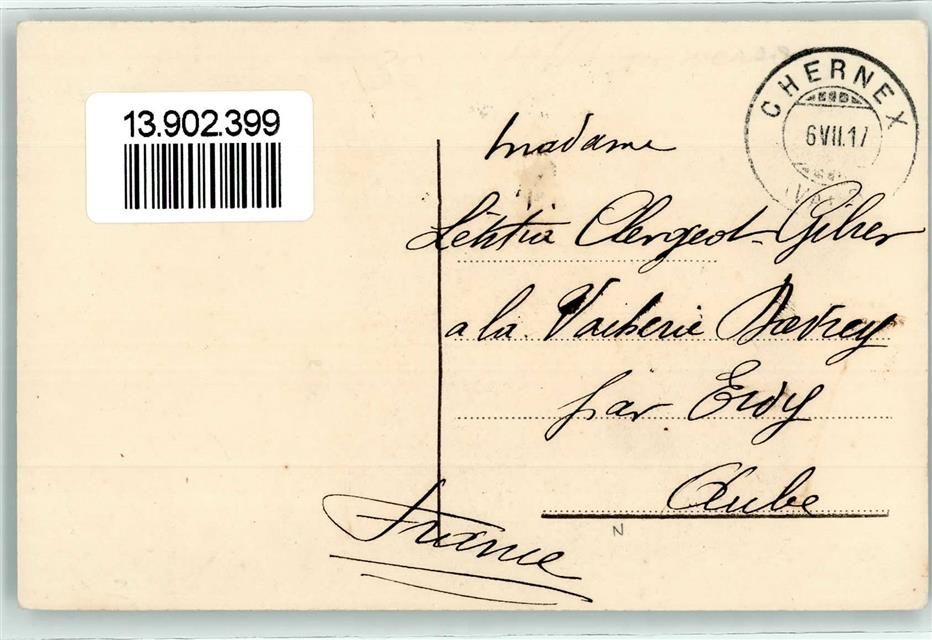 13.902.399
CHERNEX
6 VII. 17
Madame
Létitia Clergeot-Giber
a la Vacherie
par Ervy
Aube
France
N